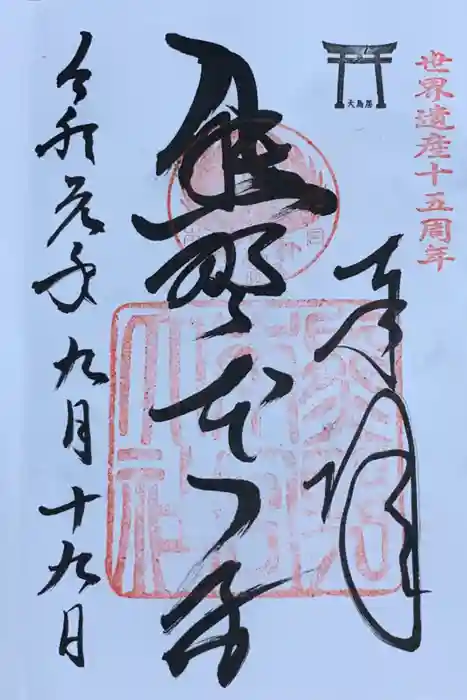 世界遺産十五周年
大鳥居
奉拝
熊野本宮
熊野
本宮
大社
令和元年九月十九日